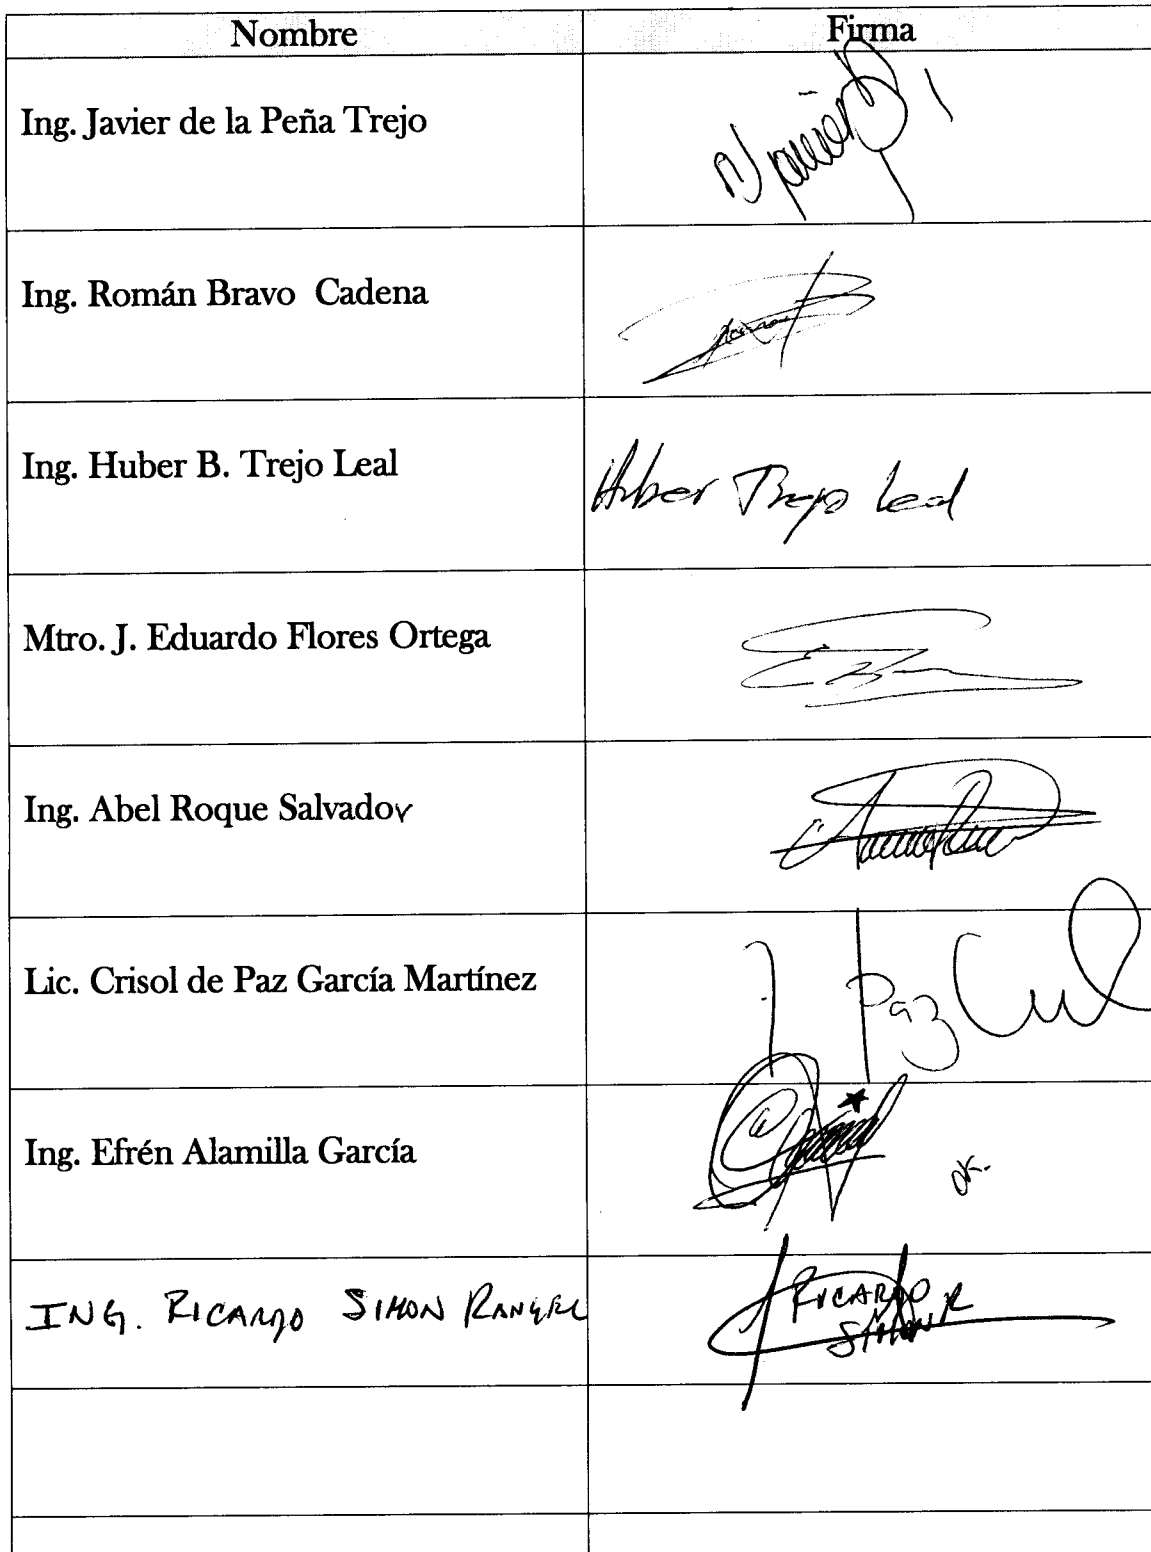 Nombre Firma
Ing. Javier de la Peña Trejo
Ing. Román Bravo Cadena
Ing. Huber B. Trejo Leal Huber Trejo Leal
Mtro. J. Eduardo Flores Ortega
Ing. Abel Roque Salvador
Lic. Crisol de Paz García Martínez Paz
Ing. Efrén Alamilla García
OK.
ING. RICARDO SIMON RANGEL RICARDO
SIMON R